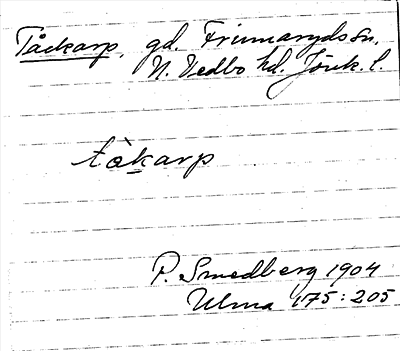 Tåckarp, gd. Frinnaryds sn.
N. Vedbo hd. Jönk. l.
tåkarp
P. Smedberg 1904
Ulma 175:205